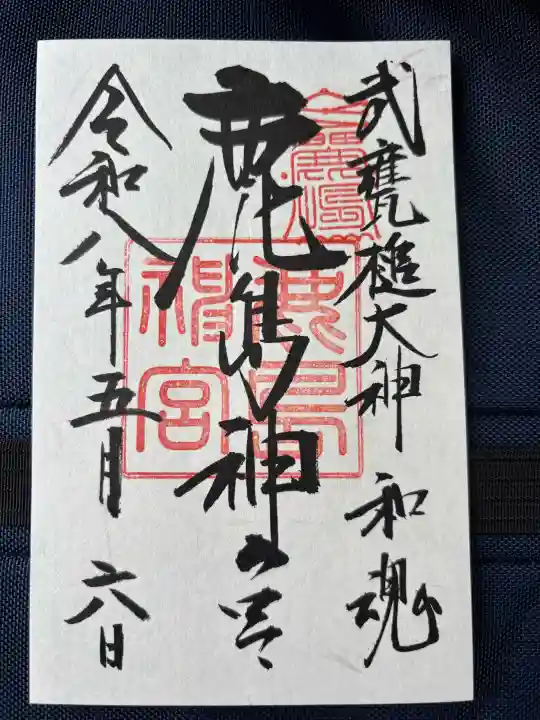 武甕槌大神 和魂
鹿島神の宮
令和八年五月六日
鹿島
神宮